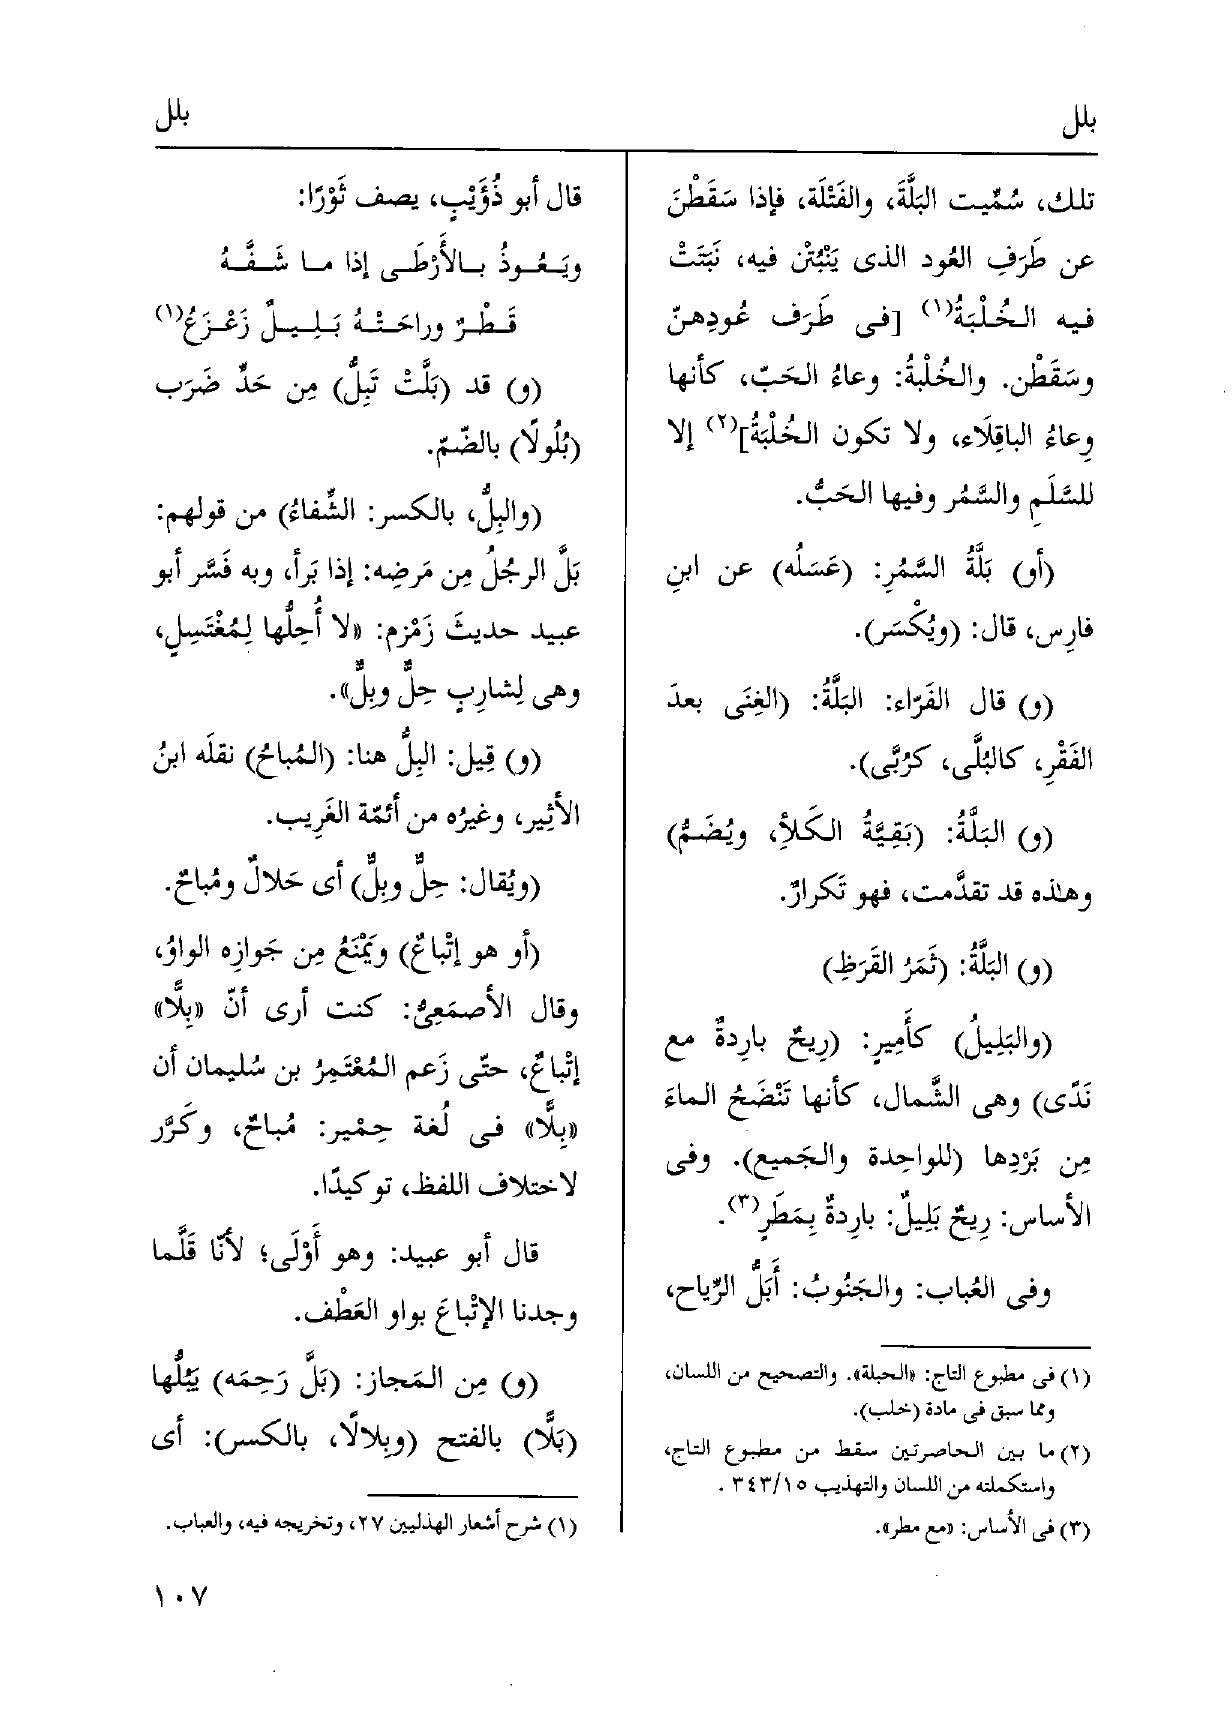 بلل
بلل
تلك، سُمِّيت البَلَّةَ، والفَتْلَة، فإذا سَقَطْنَ
عن طَرَفِ العُود الذى يَنْبُتْن فيه، نَبَتَتْ
فيه الخُلْبَةُ(١) [فى طَرَف عُودِهنّ
وسَقَطْن. والخُلْبةُ: وعاءُ الحَبّ، كأنها
وِعاءُ الباقِلَاء، ولا تكون الخُلْبَةُ](٢) إلا
للسَّلَمِ والسَّمُر وفيها الحَبُّ.
(أو) بَلَّةُ السَّمُرِ: (عَسَلُه) عن ابنِ
فارِس، قال: (ويُكْسَر).
(و) قال الفَرّاء: البَلَّةُ: (الغِنَى بعدَ
الفَقْرِ، كالبُلَّى، كرُبَّى).
(و) البَلَّةُ: (بَقِيَّةُ الكَلَأِ، ويُضَمُّ)
وهذه قد تقدَّمت، فهو تَكرارٌ.
(و) البَلَّةُ: (ثَمَرُ القَرَظِ)
(والبَلِيلُ) كأَمِيرٍ: (رِيحٌ بارِدةٌ مع
نَدًى) وهى الشَّمال، كأنها تَنْضَحُ الماءَ
مِن بَرْدِها (للواحِدة والجَميع). وفى
الأساس: رِيحٌ بَلِيلٌ: بارِدةٌ بِمَطَرٍ(٣).
وفى العُباب: والجَنُوبُ: أَبَلُّ الرِّياح،
(١) فى مطبوع التاج: «الحبلة». والتصحيح من اللسان،
ومما سبق فى مادة (خلب).
(٢) ما بين الحاصرتين سقط من مطبوع التاج،
واستكملته من اللسان والتهذيب ٣٤٣/١٥ .
(٣) فى الأساس: «مع مطر».
قال أبو ذُؤَيْبٍ، يصف ثَوْرًا:
ويَـعُـوذُ بـالأَرْطَـى إذا مـا شَـفَّـهُ
قَـطْـرٌ وراحَـتْـهُ بَـلِـيـلٌ زَعْـزَعُ(١)
(و) قد (بَلَّتْ تَبِلُّ) مِن حَدِّ ضَرَب
(بُلُولًا) بالضّمّ.
(والبِلُّ، بالكسر: الشِّفاءُ) من قولهم:
بَلَّ الرجُلُ مِن مَرضِه: إذا بَرأ، وبه فَسَّر أبو
عبيد حديثَ زَمْزم: «لا أُحِلُّها لِمُغْتَسِلٍ،
وهى لِشارِبٍ حِلٌّ وبِلٌّ».
(و) قِيل: البِلُّ هنا: (المُباحُ) نقلَه ابنُ
الأثِير، وغيرُه من أئمّة الغَرِيب.
(ويُقال: حِلٌّ وبِلٌّ) أى حَلالٌ ومُباحٌ.
(أو هو إتْباعٌ) ويَمْنَعُ مِن جَوازِه الواوُ،
وقال الأصمَعِىُّ: كنت أرى أنّ «بِلَّا»
إتْباعٌ، حتّى زَعم المُعْتَمِرُ بن سُليمان أن
«بِلَّا» فى لُغة حِمْير: مُباحٌ، وكَرَّر
لاختلاف اللفظ، توكيدًا.
قال أبو عبيد: وهو أَوْلَى؛ لأنّا قَلَّما
وجدنا الإتْباعَ بواو العَطْف.
(و) مِن المَجاز: (بَلَّ رَحِمَه) يَبُلُّها
(بَلَّا) بالفتح (وبِلالًا، بالكسر): أى
(١) شرح أشعار الهذليين ٢٧، وتخريجه فيه، والعباب.
١٠٧